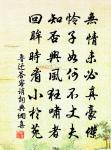 無情未必真豪傑
憐子如何不丈夫
知否興風狂嘯者
回眸時看小於菟
魯迅答客誚詞典網喜